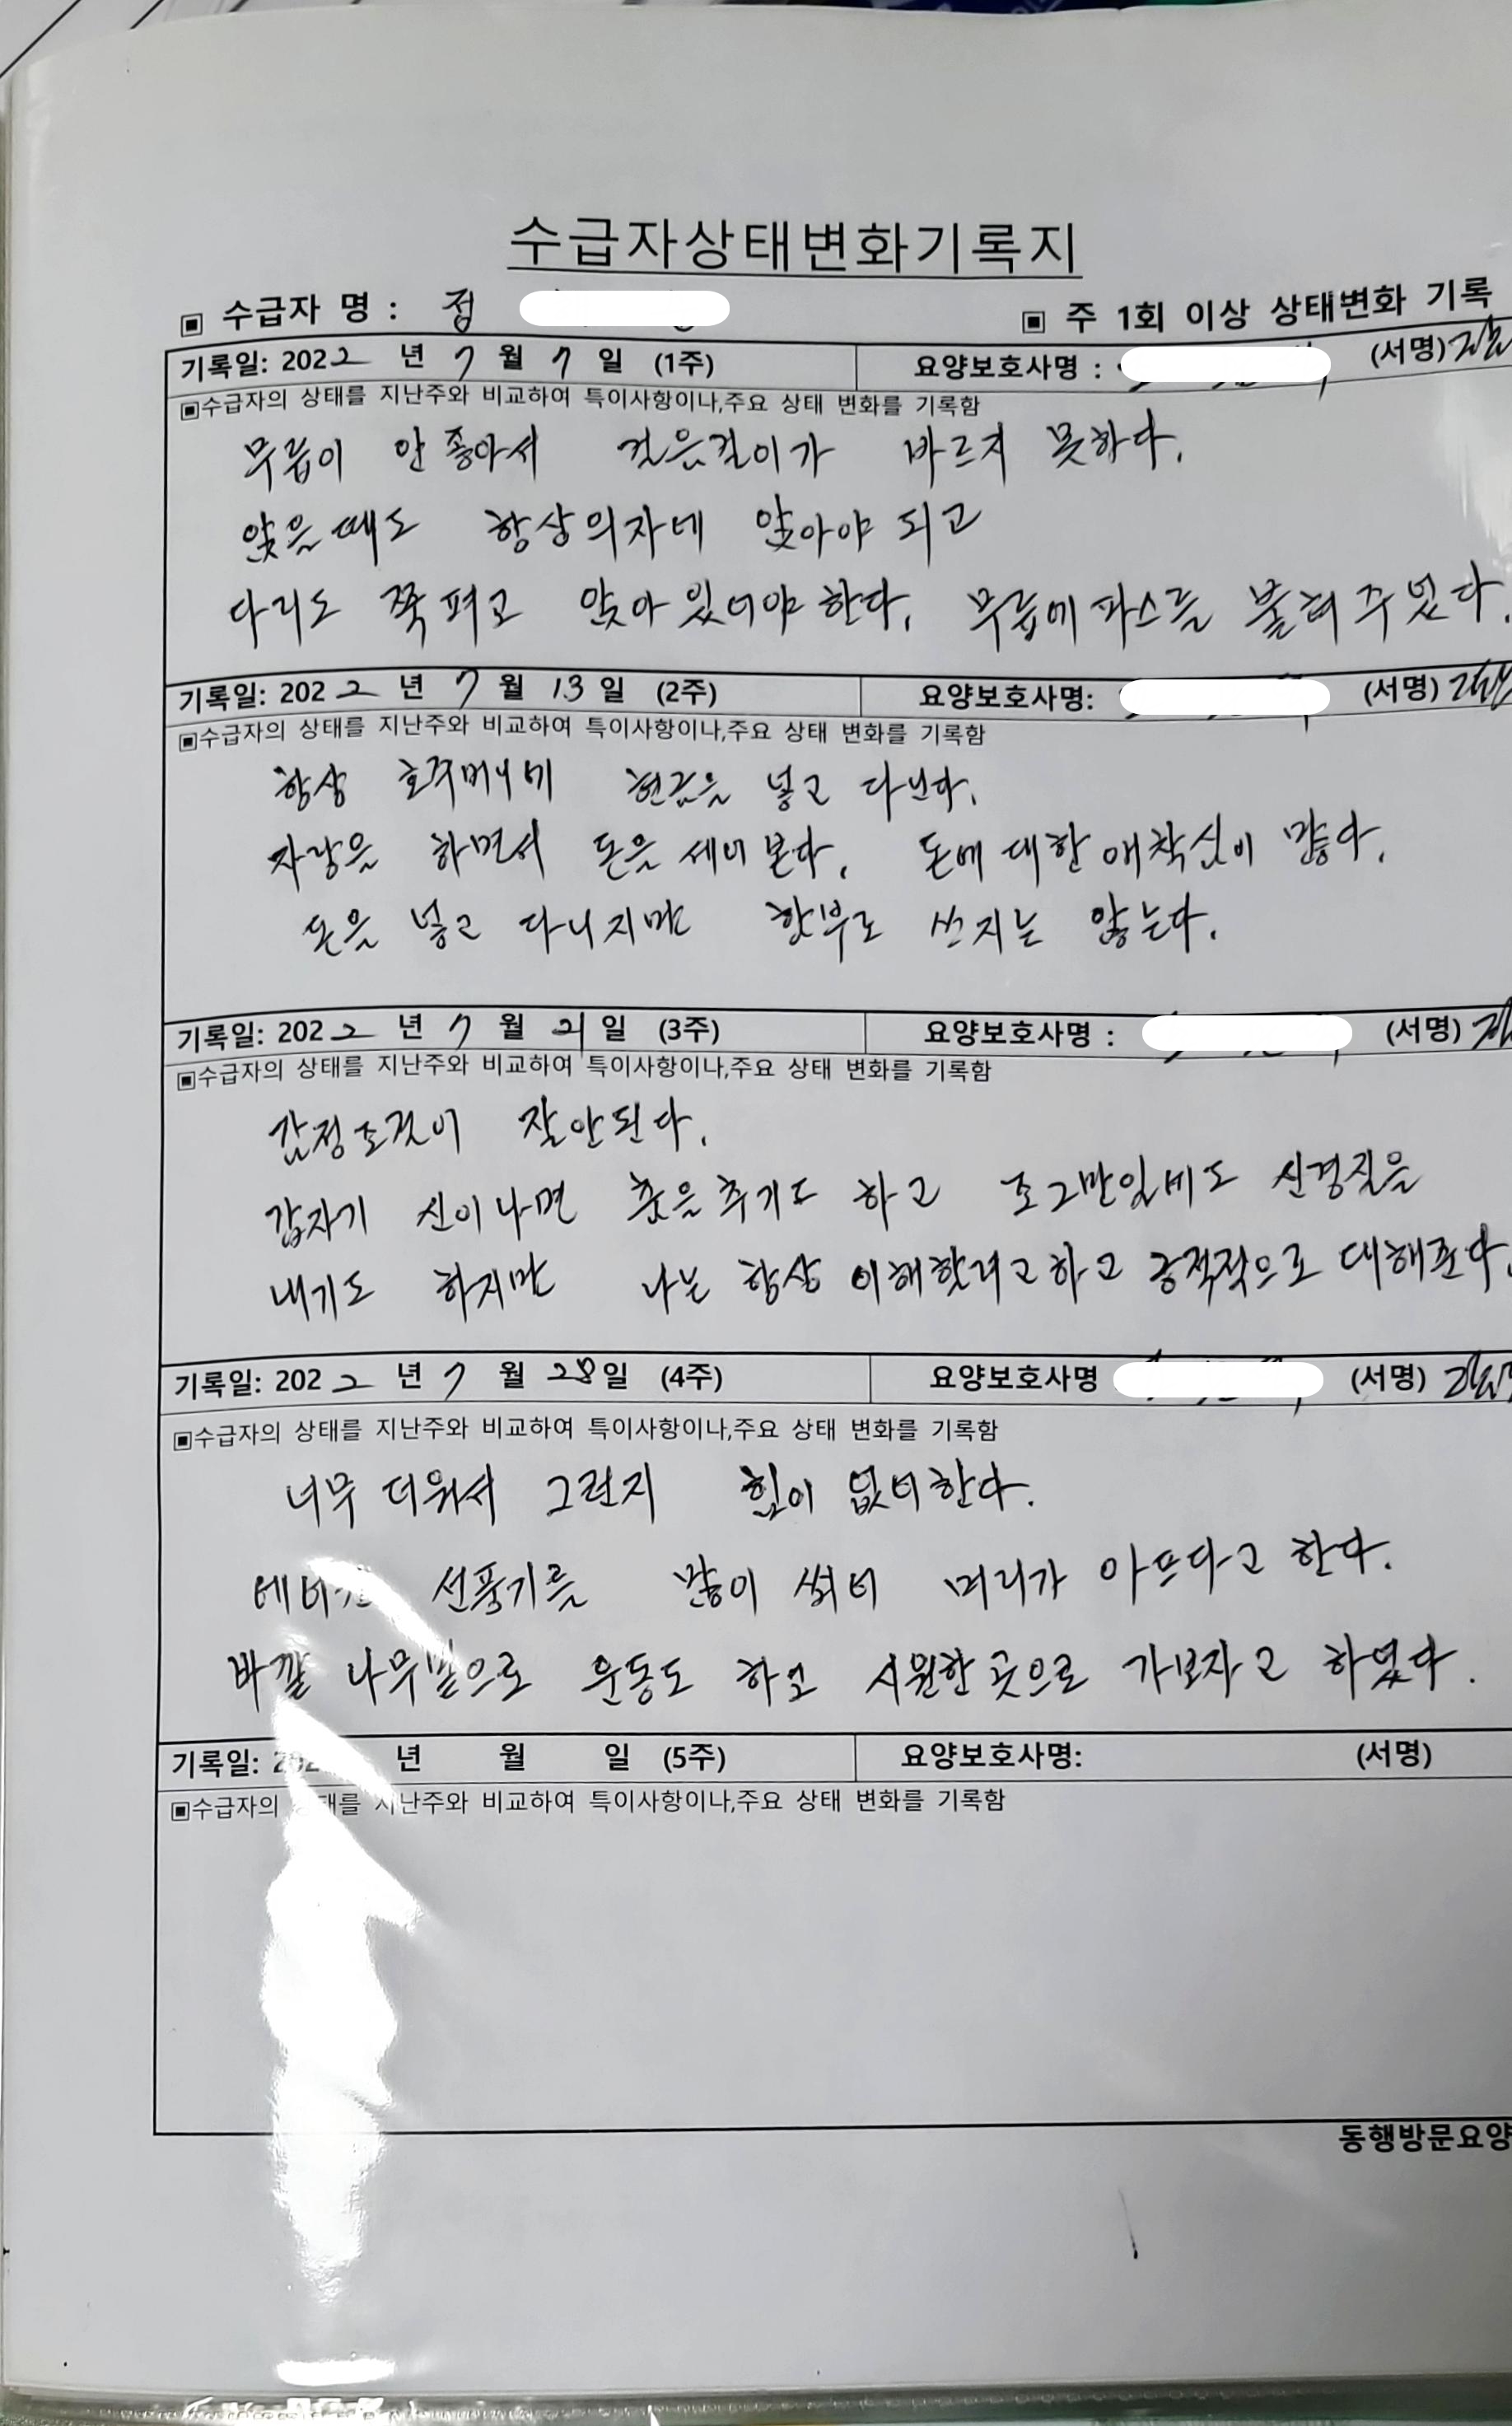 수급자상태변화기록지
▣ 수급자 명 : 정 ▣ 주 1회 이상 상태변화 기록
기록일: 2022 년 7 월 7 일 (1주) 요양보호사명 : (서명)
▣수급자의 상태를 지난주와 비교하여 특이사항이나,주요 상태 변화를 기록함
무릎이 안 좋아서 걸음걸이가 바르지 못하다.
앉을때도 항상의자에 앉아야 되고
다리도 쭉 펴고 앉아 있어야 한다. 무릎에 파스를 붙혀 주었다.
기록일: 2022 년 7 월 13 일 (2주) 요양보호사명: (서명)
▣수급자의 상태를 지난주와 비교하여 특이사항이나,주요 상태 변화를 기록함
항상 호주머니에 현금을 넣고 다닌다.
자랑을 하면서 돈을 세어 본다. 돈에 대한 애착심이 많다.
돈을 넣고 다니지만 함부로 쓰지는 않는다.
기록일: 2022 년 7 월 21 일 (3주) 요양보호사명 : (서명)
▣수급자의 상태를 지난주와 비교하여 특이사항이나,주요 상태 변화를 기록함
감정조절이 잘안된다.
갑자기 신이나면 춤을추기도 하고 조그만일에도 신경질을
내기도 하지만 나는 항상 이해할려고하고 긍적적으로 대해준다.
기록일: 2022 년 7 월 28일 (4주) 요양보호사명 (서명)
▣수급자의 상태를 지난주와 비교하여 특이사항이나,주요 상태 변화를 기록함
너무 더워서 그런지 힘이 없어한다.
선풍기를 많이 쐬어 머리가 아프다고 한다.
바깥 나무밑으로 운동도 하고 시원한 곳으로 가보자고 하였다.
기록일: 202 년 월 일 (5주) 요양보호사명: (서명)
▣수급자의 상태를 지난주와 비교하여 특이사항이나,주요 상태 변화를 기록함
동행방문요양